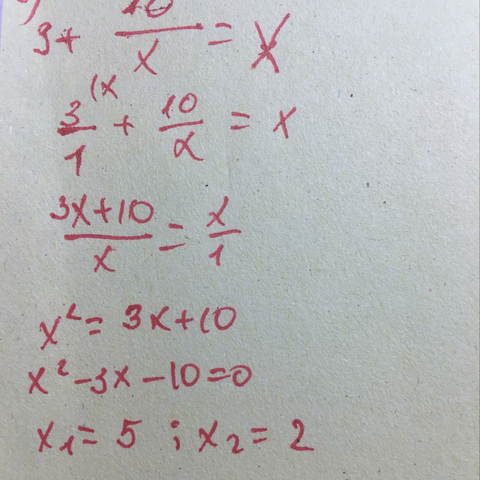 3+ 10/x = x
3/1 (x + 10/x = x
3x+10/x = x/1
x² = 3x+10
x²-3x-10=0
x₁= 5 ; x₂= 2